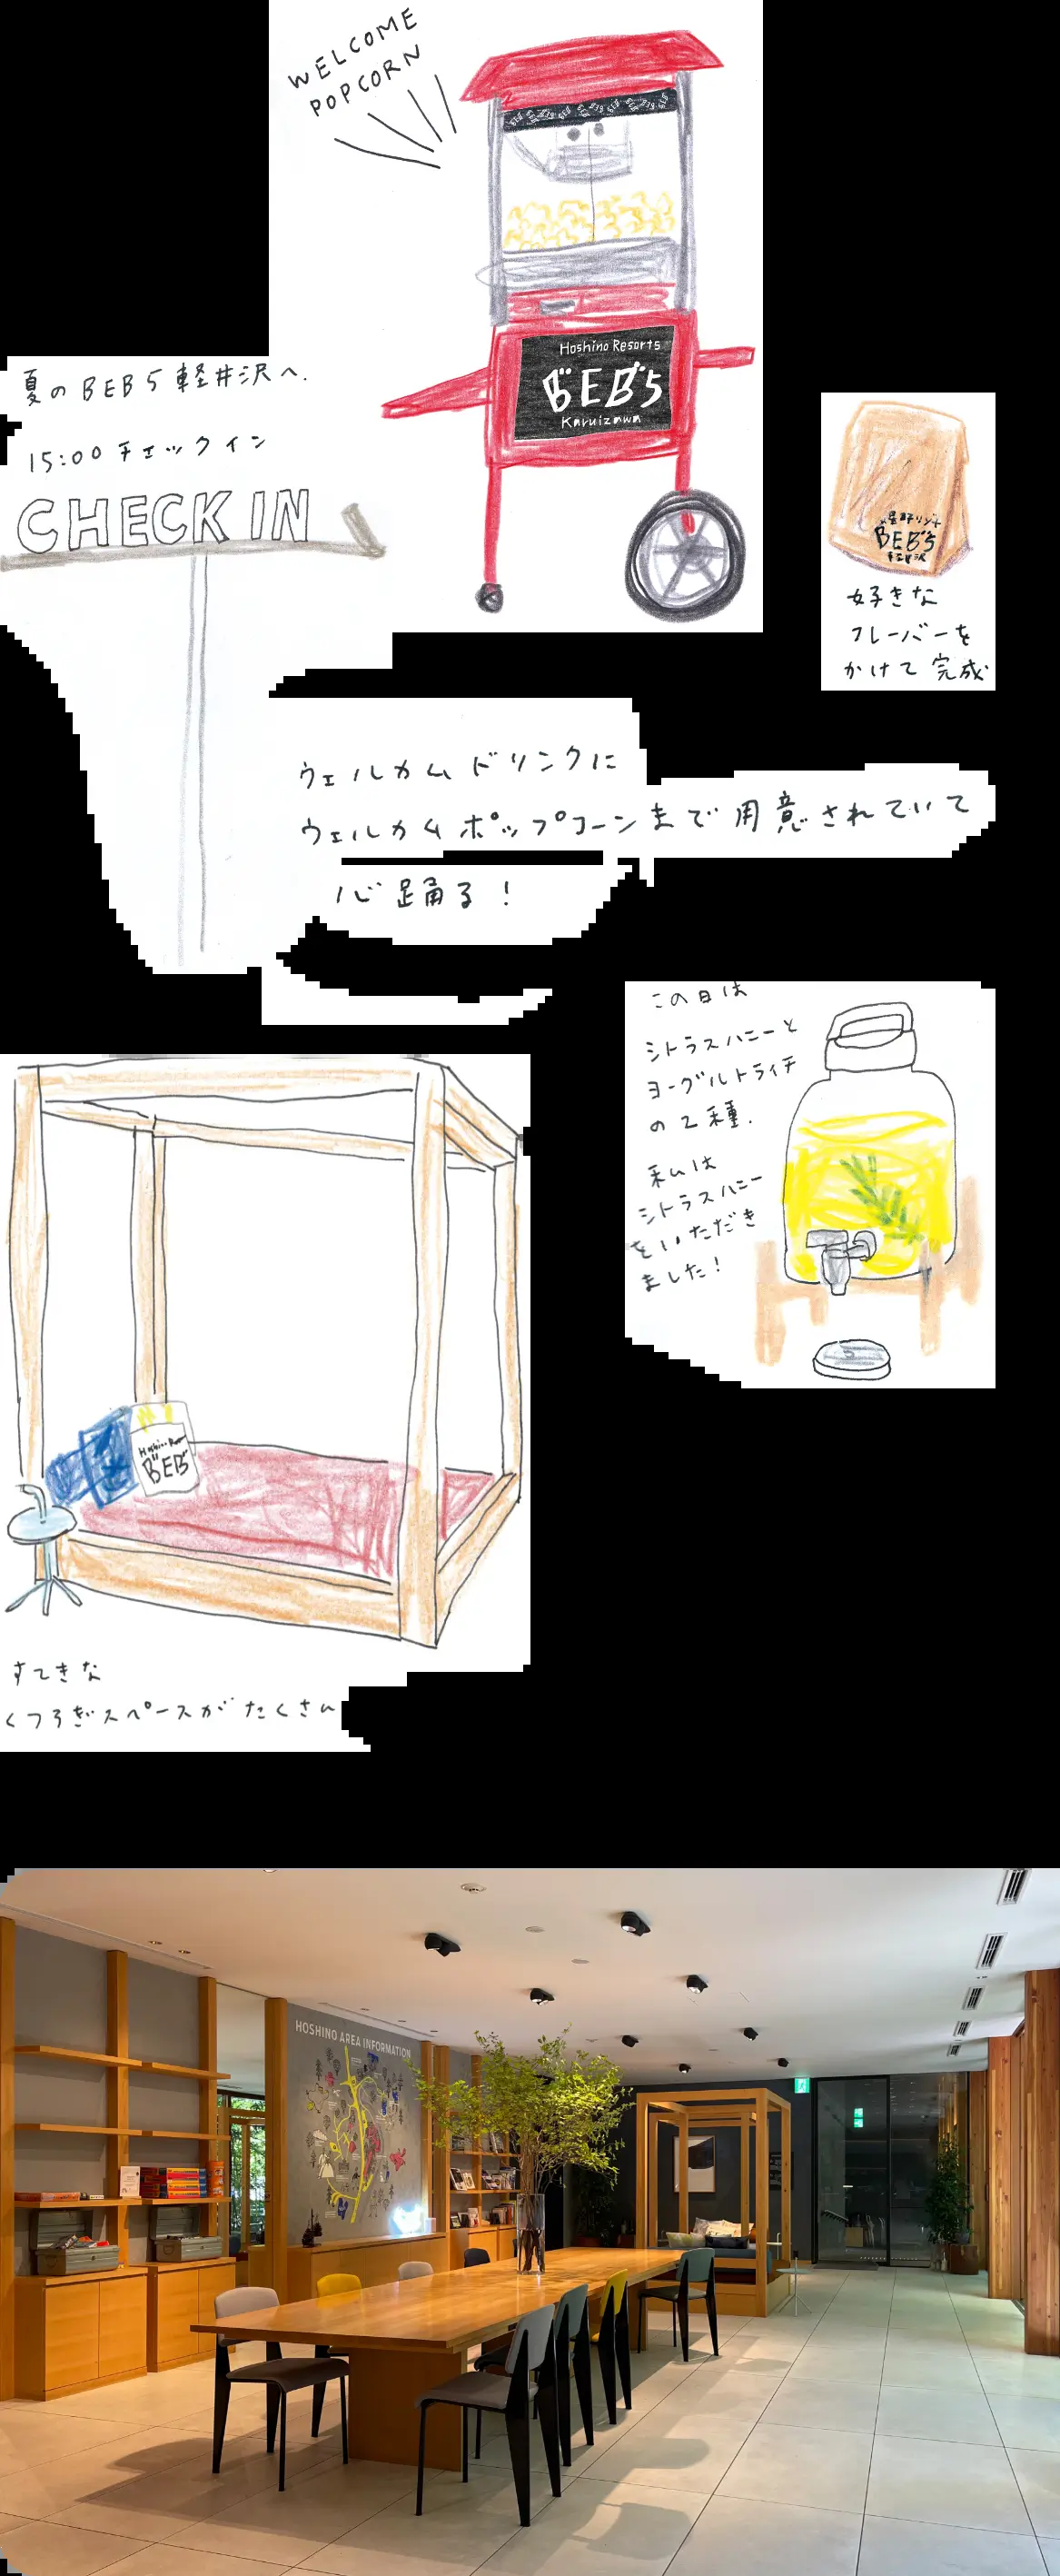 WELCOME
POPCORN
Hoshino Resorts
BEB5
Karuizawa
夏のBEB5軽井沢へ.
15:00チェックイン
CHECK IN
星野リゾート
BEB5
軽井沢
好きな
フレーバーを
かけて完成
ウェルカムドリンクに
ウェルカムポップコーンまで用意されていて
心踊る!
この日は
シトラスハニーと
ヨーグルトライチ
の2種.
私は
シトラスハニー
をいただき
ました!
Hoshino
BEB
すてきな
くつろぎスペースがたくさん
HOSHINO AREA INFORMATION